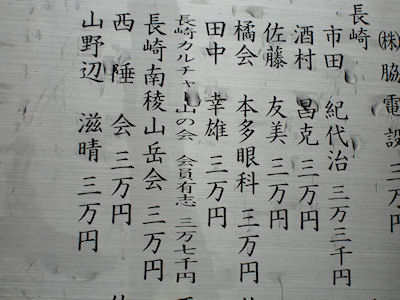 ㈱脇電設 三万円
長崎
市田 紀代治 三万三千円
酒村 昌克 三万円
佐藤 友美 三万円
橘会 本多眼科 三万円
田中 幸雄 三万円
長崎カルチャー山の会 会員有志 三万七千円
長崎南稜山岳会 三万円
西陲会 三万円
山野辺 滋晴 三万円